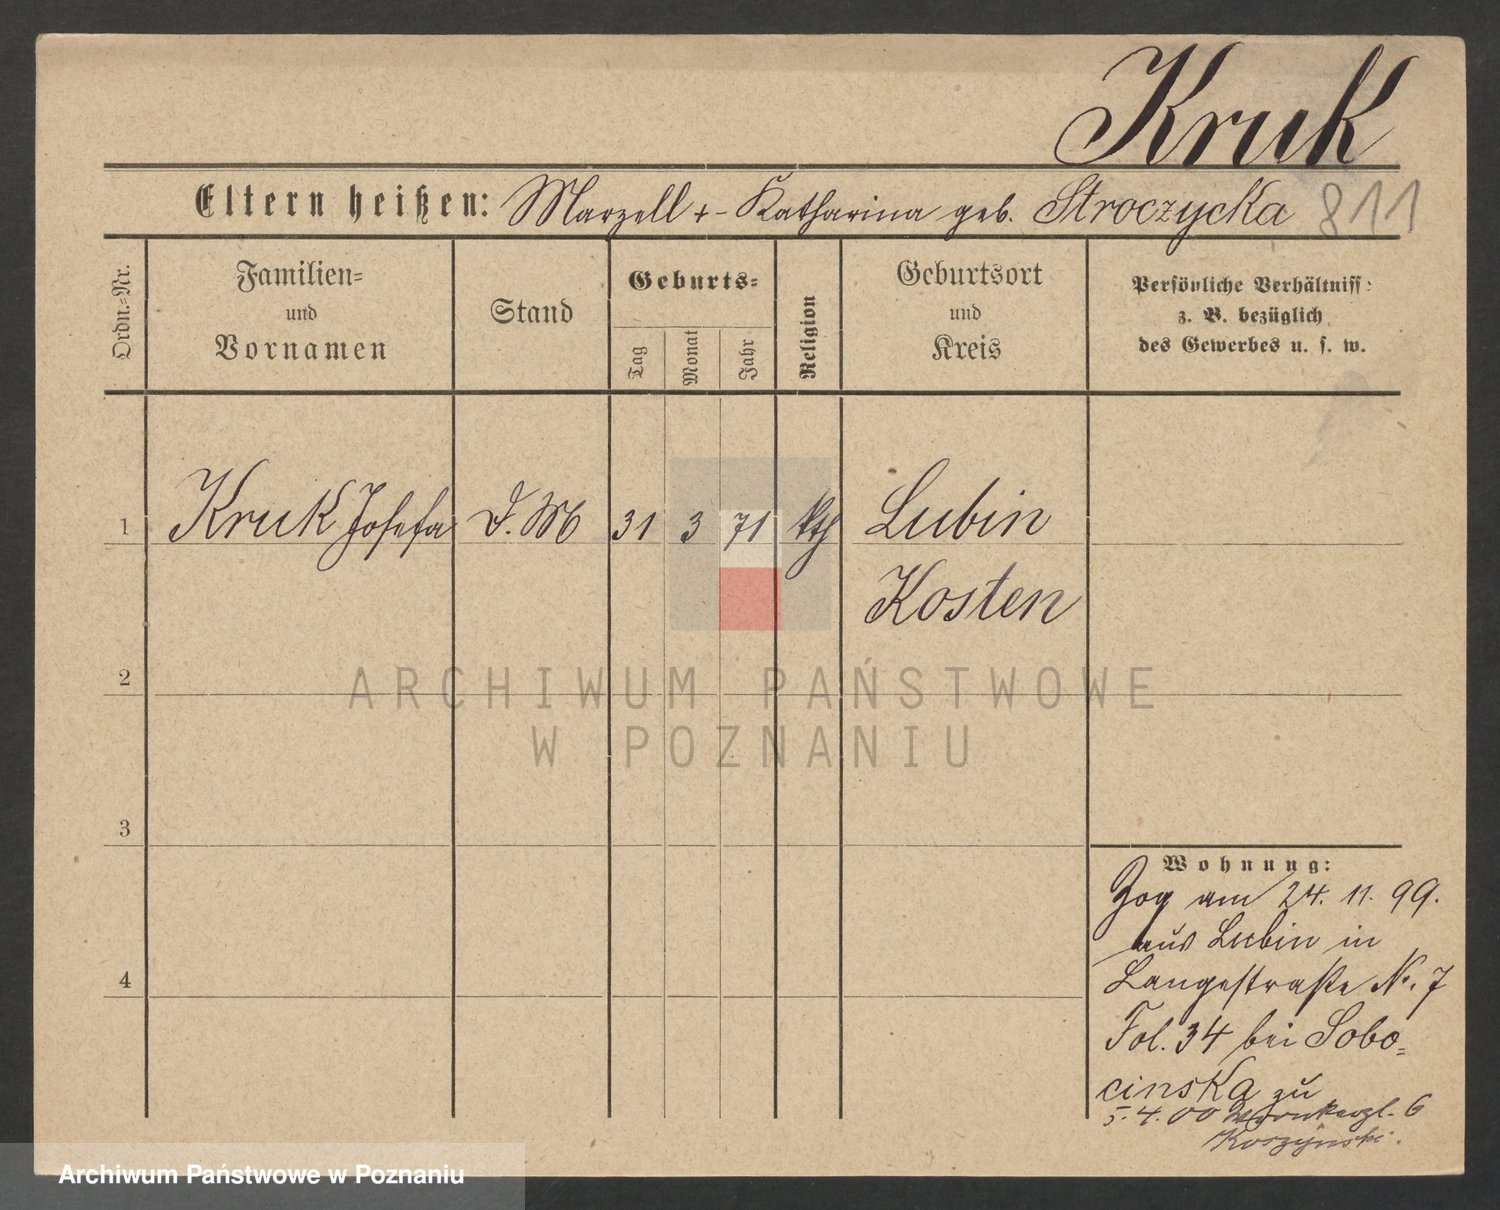 Kruk
Eltern heißen: Marzell + - Katharina geb. Stroczycka 811
Ordn.-Nr.
Familien- und Vornamen
Stand
Geburts-
Tag
Monat
Jahr
Religion
Geburtsort und Kreis
Persönliche Verhältniss:
z. B. bezüglich
des Gewerbes u. s. w.
1 Kruk Josefa d. M 31 3 71 kth Lubin
Kosten
2
ARCHIWUM PAŃSTWOWE
W POZNANIU
3
4
Wohnung:
Zog am 24. 11. 99.
aus Lubin in
Langestraße No. 7
Fol. 34 bei Sobo=
cinska zu
5. 4. 00 6
Koszynski.
Archiwum Państwowe w Poznaniu